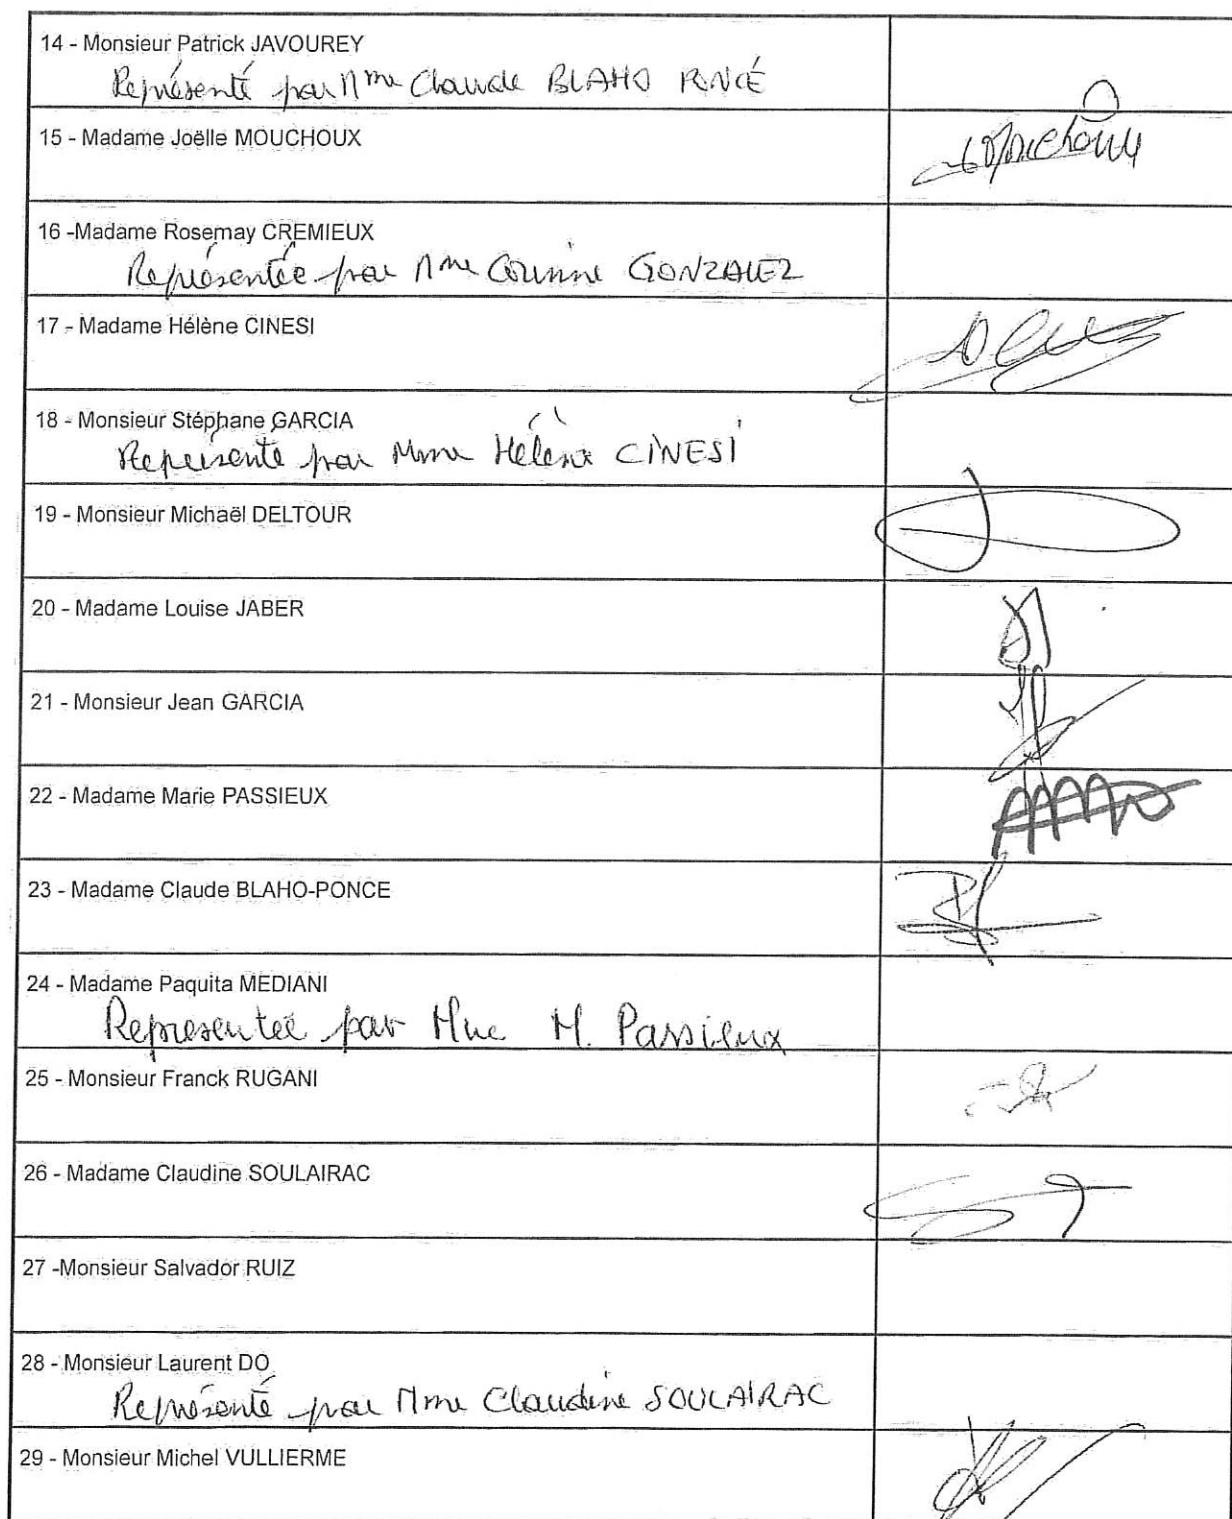 14 - Monsieur Patrick JAVOUREY
Représenté par Mme Claude BLAHO PONCÉ
15 - Madame Joëlle MOUCHOUX
16 -Madame Rosemay CREMIEUX
Représentée par Mme Corinne GONZALEZ
17 - Madame Hélène CINESI
18 - Monsieur Stéphane GARCIA
Représenté par Mme Hélène CINESI
19 - Monsieur Michaël DELTOUR
20 - Madame Louise JABER
21 - Monsieur Jean GARCIA
22 - Madame Marie PASSIEUX
23 - Madame Claude BLAHO-PONCE
24 - Madame Paquita MEDIANI
Representée par Mme M. Passieux
25 - Monsieur Franck RUGANI
26 - Madame Claudine SOULAIRAC
27 -Monsieur Salvador RUIZ
28 - Monsieur Laurent DO
Représenté par Mme Claudine SOULAIRAC
29 - Monsieur Michel VULLIERME